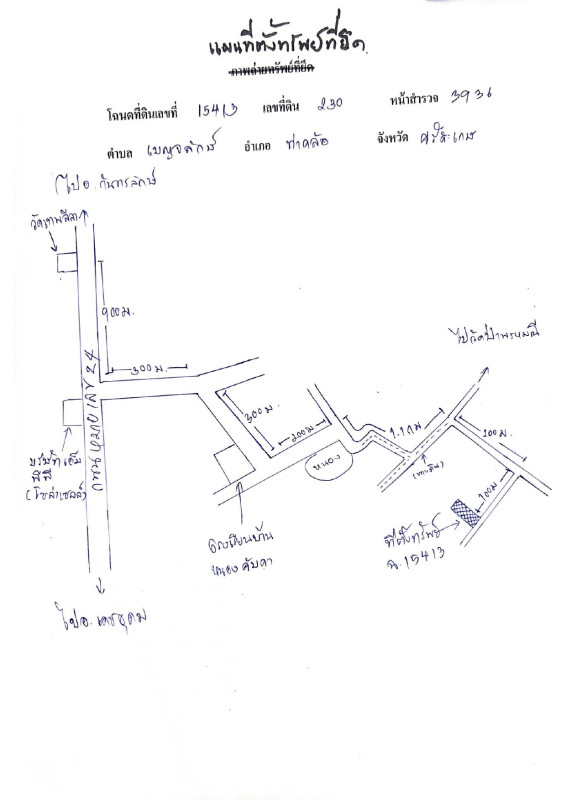 แผนที่ตั้งทรัพย์ที่ยึด
ภาพถ่ายทรัพย์ที่ยึด
โฉนดที่ดินเลขที่ 15413 เลขที่ดิน 230 หน้าสำรวจ 3936
ตำบล เบญจลักษ์ อำเภอ ท่าคล้อ จังหวัด ศรีสะเกษ
ไป อ.กันทรลักษ์
วัดเทพลีลา
900 ม.
300 ม.
ถนนหมายเลข 24
ไปวัดป่าพรหมณี
300 ม.
200 ม.
1.1 กม
100 ม.
100 ม
หนอง
(ทางดิน)
บริษัทเอ็ม
พีพี
(โซล่าเซลล์)
โรงเรียนบ้าน
หนองคับคา
ที่ตั้งทรัพย์
ฉ.15413
ไป อ.เดชอุดม